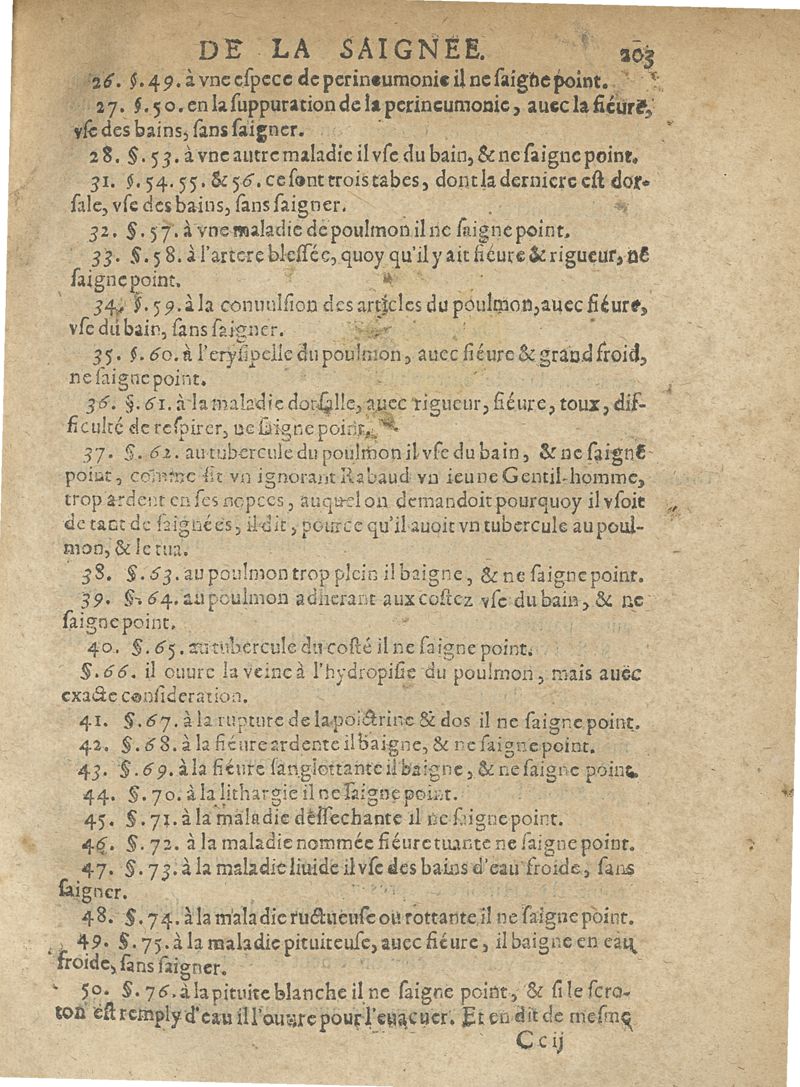 DE LA SAIGNEE. 203
26. §. 49. à vne espece de perineumonie il ne saigne point.
27. §. 50. en la suppuration de la perineumonie, auec la fiéure,
vse des bains, sans saigner.
28. §. 53. à vne autre maladie il vse du bain, & ne saigne point.
31. §. 54. 55. & 56. ce sont trois tabes, dont la derniere est dor-
sale, vse des bains, sans saigner.
32. §. 57. à vne maladie de poulmon il ne saigne point.
33. §. 58. à l'artere blessée, quoy qu'il y ait fiéure & rigueur, ne
saigne point.
34. §. 59. à la conuulsion des articles du poulmon, auec fiéure,
vse du bain, sans saigner.
35. §. 60. à l'erysipelle du poulmon, auec fiéure & grand froid,
ne saigne point.
36. §. 61. à la maladie dorsalle, auec rigueur, fiéure, toux, dif-
ficulté de respirer, ne saigne point.
37. §. 62. au tubercule du poulmon il vse du bain, & ne saigne
point, comme fit vn ignorant Rabaud vn ieune Gentil-homme,
trop ardent en ses nopces, auquel on demandoit pourquoy il vsoit
de tant de saignées, il dit, pource qu'il auoit vn tubercule au poul-
mon, & le tua.
38. §. 63. au poulmon trop plein il baigne, & ne saigne point.
39. §. 64. au poulmon adherant aux costez vse du bain, & ne
saigne point.
40. §. 65. au tubercule du costé il ne saigne point.
§. 66. il ouure la veine à l'hydropisie du poulmon, mais auec
exacte consideration.
41. §. 67. à la rupture de la poictrine & dos il ne saigne point.
42. §. 68. à la fiéure ardente il baigne, & ne saigne point.
43. §. 69. à la fiéure sanglottante il baigne, & ne saigne point.
44. §. 70. à la lithargie il ne saigne point.
45. §. 71. à la maladie dessechante il ne saigne point.
46. §. 72. à la maladie nommée fiéure tuante ne saigne point.
47. §. 73. à la maladie liuide il vse des bains d'eau froide, sans
saigner.
48. §. 74. à la maladie ructueuse ou rottante il ne saigne point.
49. §. 75. à la maladie pituiteuse, auec fiéure, il baigne en eau
froide, sans saigner.
50. §. 76. à la pituite blanche il ne saigne point, & si le scro-
ton est remply d'eau il l'ouure pour l'euacuer. Et en dit de mesme
Ccij